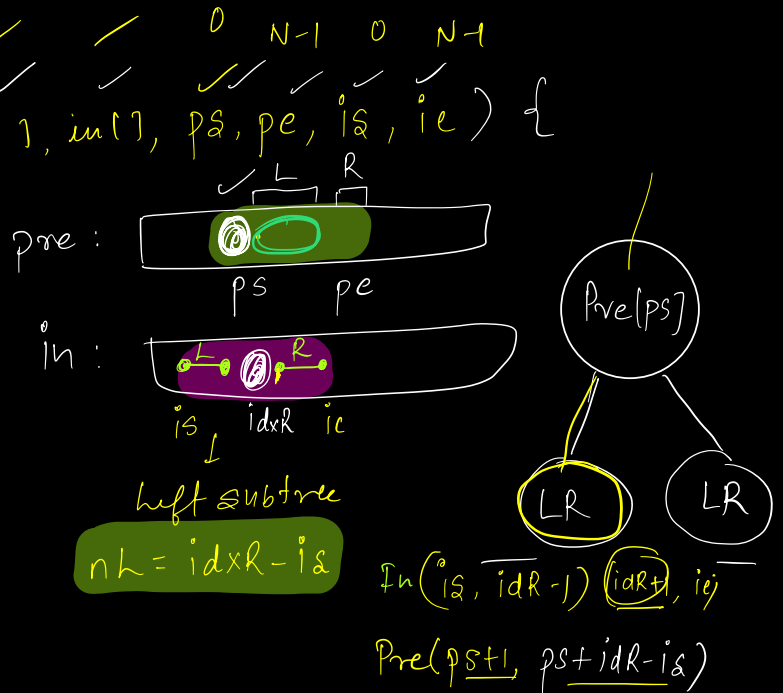 0 N-1 0 N-1
], in[], ps, pe, is, ie) {
L R
pre :
ps pe
in :
L R
is idxR ie
Left subtree
nL = idxR - is
Pre[ps]
LR LR
In(is, idR-1) (idR+1, ie)
Pre(ps+1, ps+idR-is)